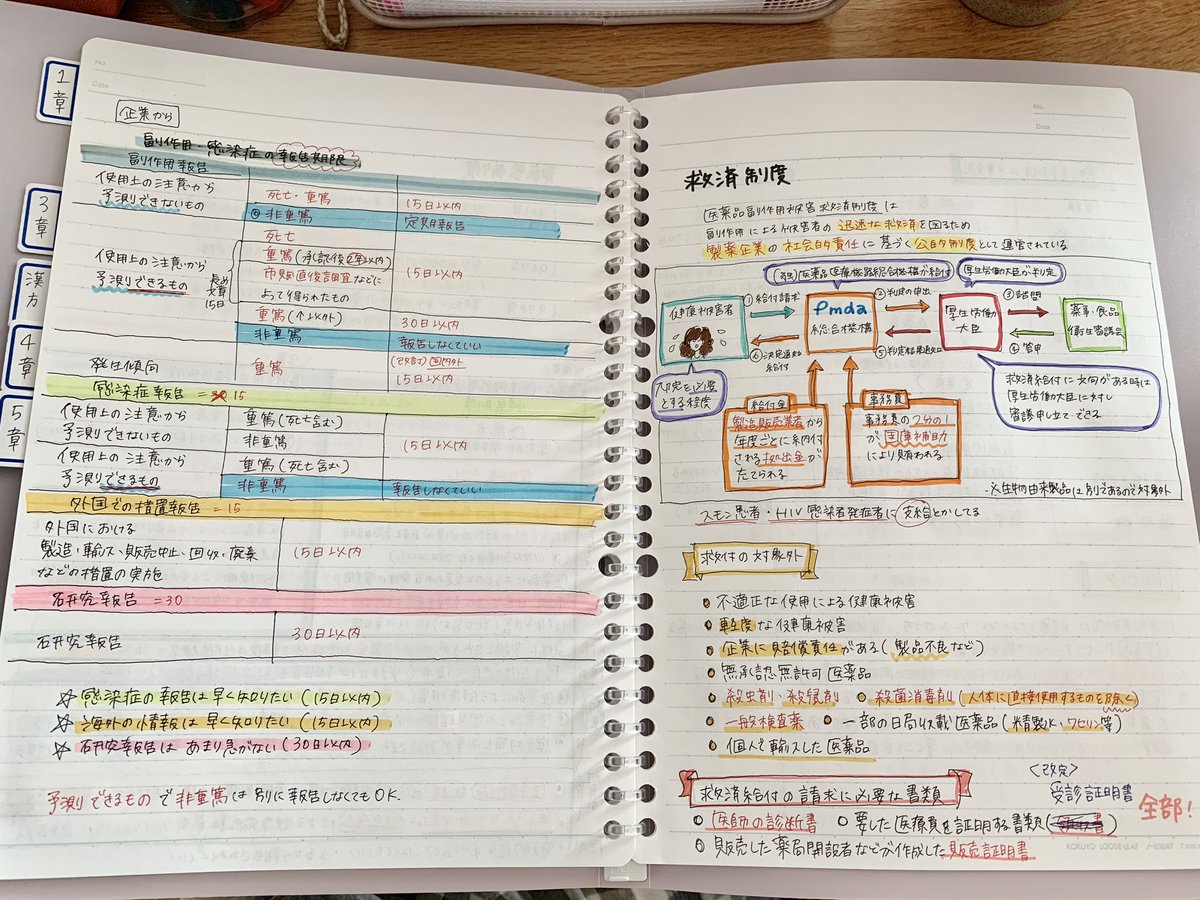 1章
3章
漢方
4章
5章
No.
Date
企業から
副作用・感染症の報告期限
副作用報告
使用上の注意から
予測できないもの
死亡・重篤
15日以内
非重篤
定期報告
使用上の注意から
予測できるもの
死亡
重篤(承認後2年以内)
市販直後調査などに
よって得られたもの
15日以内
重篤(↑以外)
30日以内
非重篤
報告しなくていい
発生傾向
重篤
15日以内
感染症報告 = 15
使用上の注意から
予測できないもの
重篤(死亡含む)
非重篤
15日以内
使用上の注意から
予測できるもの
重篤(死亡含む)
非重篤
報告しなくていい
外国での措置報告 = 15
外国における
製造・輸入・販売中止、回収・廃棄
などの措置の実施
15日以内
研究報告 = 30
研究報告
30日以内
☆感染症の報告は早く知りたい(15日以内)
☆海外の情報は早く知りたい(15日以内)
☆研究報告は あまり急がない(30日以内)
予測できるもので非重篤は別に報告しなくてもOK.
No.
Date
救済制度
医薬品副作用被害救済制度は
副作用による被害者の迅速な救済を図るため
製薬企業の社会的責任に基づく公的制度として運営されている
(独)医薬品医療機器総合機構が給付
厚生労働大臣が判定
健康被害者
①給付請求
Pmda
総合機構
②判定の申出
厚生労働
大臣
③諮問
薬事・食品
衛生審議会
⑥決定通知
給付
⑤判定結果通知
④答申
入院を必要
とする程度
給付金
製造販売業者から
年度ごとに納付
される拠出金が
充てられる
事務費
事務費の2分の1
が、国庫補助
により賄われる
救済給付に文句がある時は
厚生労働大臣に対し
審議申し立てできる
※生物由来製品は別であるので対象外
スモン患者・HIV感染者発症者に支給とかしてる
救付の対象外
不適正な使用による健康被害
軽度な健康被害
企業に賠償責任がある(製品不良など)
無承認無許可医薬品
殺虫剤・殺鼠剤 殺菌消毒剤(人体に直接使用するものを除く)
一般検査薬 一部の日局収載医薬品(精製水、ワセリン等)
個人で輸入した医薬品
救済給付の請求に必要な書類
<改定>
受診証明書
医師の診断書 要した医療費を証明する書類
全部!
販売した薬局開設者などが作成した販売証明書
KOKUYO LOOSE-LEAF